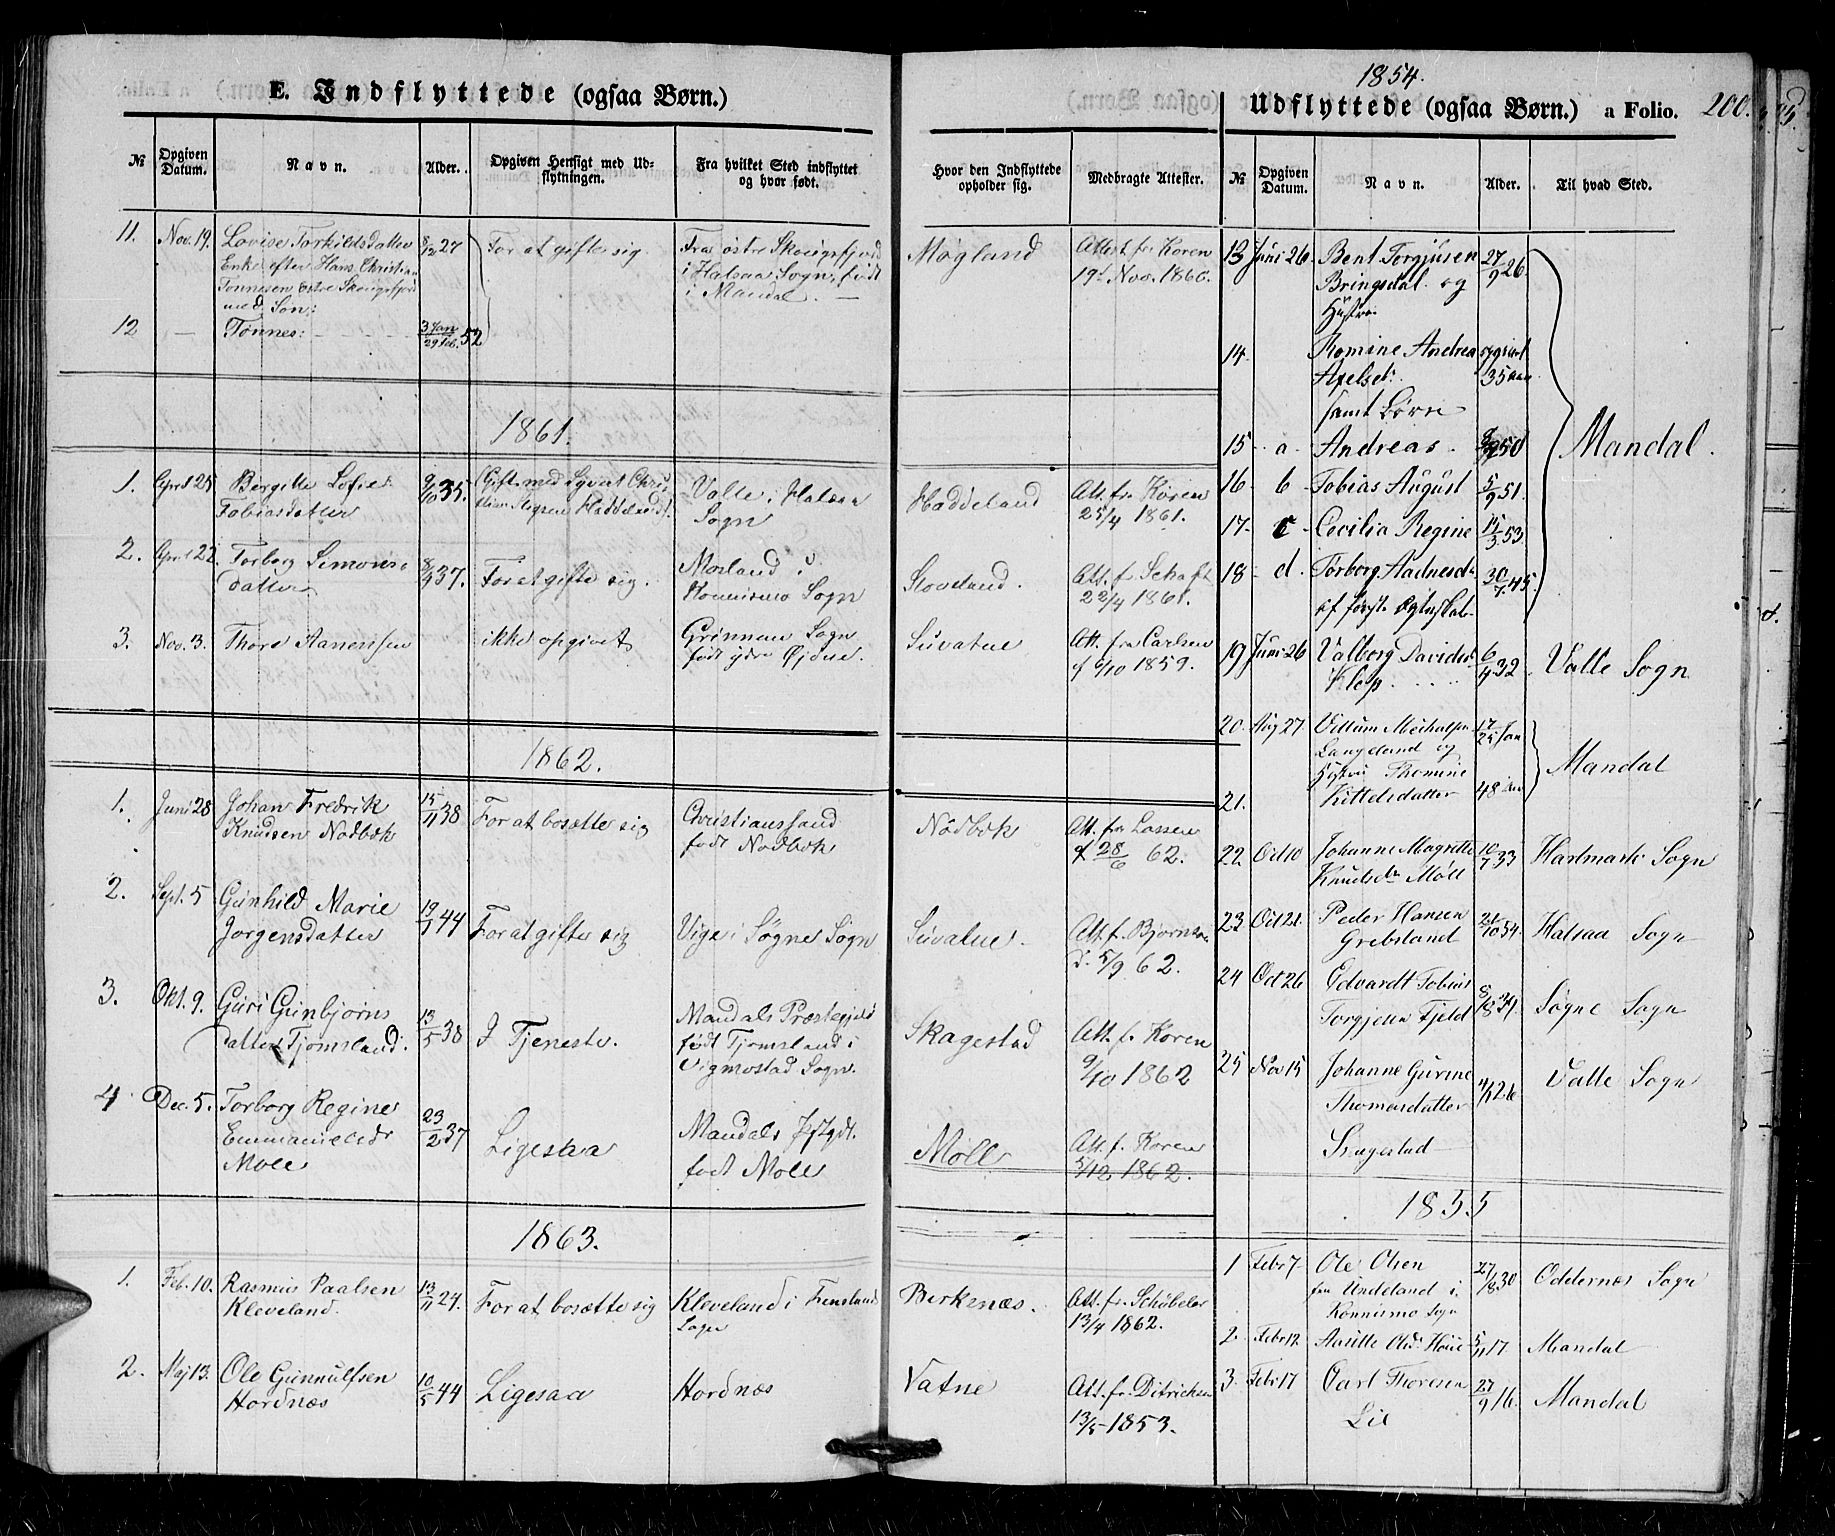 E. Indflyttede (ogsaa Børn.)
№ Opgiven Datum. Navn. Alder. Opgiven Hensigt med Udflytningen. Fra hvilket Sted indflyttet og hvor født. Hvor den Indflyttede opholder sig. Medbragte Attester.
11. Nov. 19. Lovise Torkildsdatter 8/12 27 For at gifte sig. Fra østre Skougsfjord Møgland Attest fr. Koren
Enke efter Hans Christian i Halsaa Sogn, født 19d Nov. 1860.
Tønnesen østre Skougsfjord i Mandal. —
med Søn:
12 — Tønnes: 3 Jan 29 Feb. 52
1861.
1. April 25 Bergitte Sofie 9/10 35. Gift med Syvert Chris Valle i Halsaa Haddeland Att. fr. Koren
Tobiasdatter Haddeland. Sogn 25/4 1861.
2. April 22. Torborg Simons 8/9 37. For at gifte sig. Mosland i Stoveland. Att. f. Schaft
datter Konnismo Sogn 22/4 1861.
3. Nov. 3. Thore Aanensen ikke opgivet Grinnem Sogn Suvatne Att. fra Carlsen
født ydre Øjdne. f 6/10 1859.
1862.
1. Juni 28 Johan Fredrik 15/11 38 For at bosætte sig Christianssand Nødbæk Att. fr. Lassen
Knudsen Nodbæk født Nodbæk f 28/6 62.
2. Sept. 5 Gunhild Marie 19/1 44 For at gifte sig Vige i Søgne Sogn Suvatne. Att. f. Bjørnson
Jørgensdatter d. 5/9 62.
3. Okt. 9. Guri Gunbjørns 13/5 38 I Tjeneste. Mandals Præstegjeld Skagestad Att. f. Koren
datter Tjomsland. født Tjomsland i 9/10 1862
Vigmostad Sogn.
4 Dec. 5. Torborg Regine 23/2 37 Ligesaa Mandals Pstgdt. Møll Att. f. Koren
Emmanielsdr født Møll 5/12 1862.
Møll
1863.
1. Feb. 10. Rasmus Paalsen 13/11 24. For at bosætte sig Kleveland i Finsland Birkenæs. Att. fr. Schübeler
Kleveland. Sogn 13/4 1862.
2. Maj 13. Ole Gunnulfsen 10/5 44 Ligesaa Hordnæs Vatne Att. fr. Ditrichsen
Hordnæs 13/5 1853.
1854.
Udflyttede (ogsaa Børn.) a Folio. 200.
№ Opgiven Datum. Navn. Alder. Til hvad Sted.
13 Juni 26. Bent Torgjusen 27/9 26. Mandal.
Bringsdal og
Hustru
14. Romine Andrea
Axelsd: 35 Aar
samt Børn
15 a. Andreas. 50
16. b Tobias August 5/9 51.
17. c Cecilia Regine 15/3 53
18 d. Torborg Aadnesd. 30/7 45.
af første Ægteskab.
19 Juni 26 Valborg Davidsd. 6/4 32 Valle Sogn
Klep
20. Aug 27. Villum Michalsen 17/25 Jan Mandal
Langeland og
Hustru Thomine
21. Kittelsdatter 48 Aar
22. Oct 10 Johanne Magrette 10/7 33 Hartmark Sogn
Knudsdr Møll
23 Oct 21. Peder Hansen 21/10 34. Halsaa Sogn
Grebsland
24 Oct 26 Edvardt Tobias Søgne Sogn
Torgjers Fjeld
25 Nov 15 Johanne Gurine 4/12 26 Valle Sogn
Thomasdatter
Skagestad
1855
1 Febr 7 Ole Olsen 27/8 30 Oddernæs Sogn
fra Undeland i
Konnismo Sogn
2. Febr 12 5/11 17 Mandal
3. Febr 17 Carl Thoresen 27/9 16. Mandal
Lie